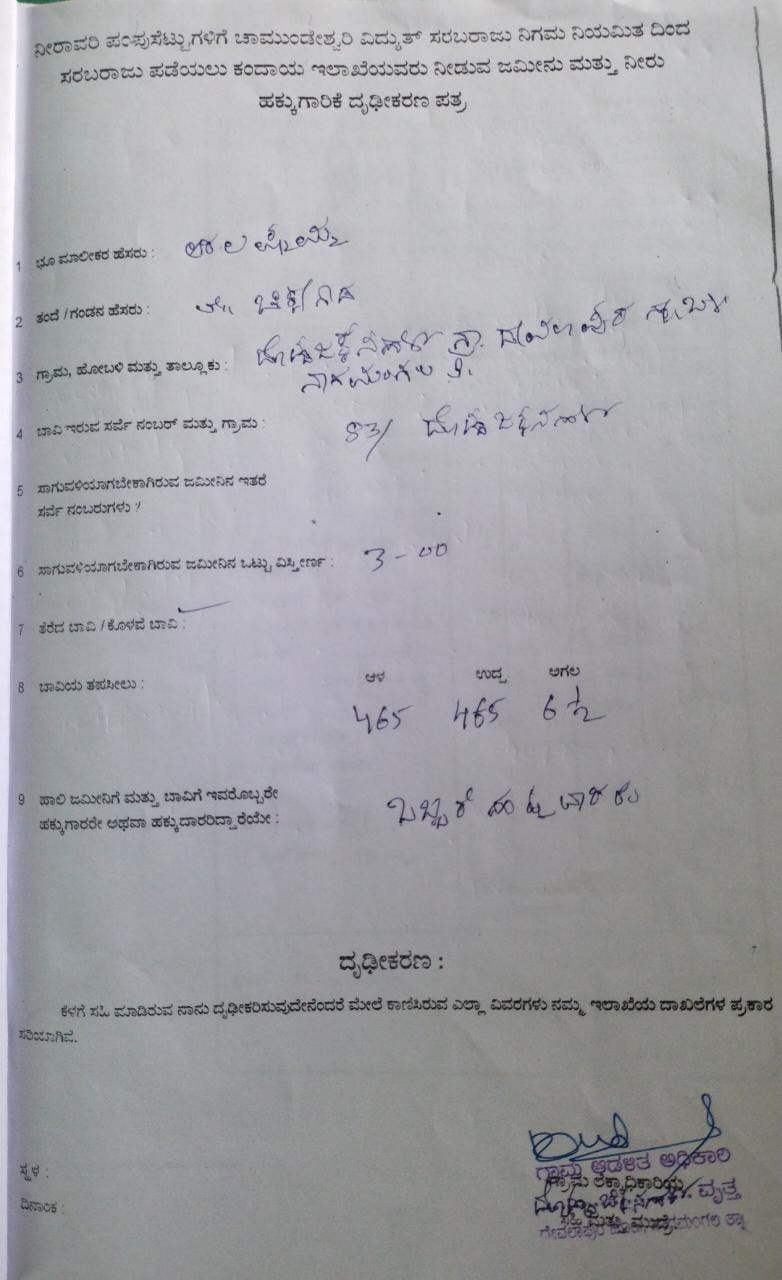 ನೀರಾವರಿ ಪಂಪುಸೆಟ್ಟುಗಳಿಗೆ ಚಾಮುಂಡೇಶ್ವರಿ ವಿದ್ಯುತ್ ಸರಬರಾಜು ನಿಗಮ ನಿಯಮಿತ ದಿಂದ
ಸರಬರಾಜು ಪಡೆಯಲು ಕಂದಾಯ ಇಲಾಖೆಯವರು ನೀಡುವ ಜಮೀನು ಮತ್ತು ನೀರು
ಹಕ್ಕುಗಾರಿಕೆ ದೃಢೀಕರಣ ಪತ್ರ
1 ಭೂ ಮಾಲೀಕರ ಹೆಸರು :
2 ತಂದೆ / ಗಂಡನ ಹೆಸರು :
3 ಗ್ರಾಮ, ಹೋಬಳಿ ಮತ್ತು ತಾಲ್ಲೂಕು :
ನಾಗಮಂಗಲ ತಾ.
4 ಬಾವಿ ಇರುವ ಸರ್ವೆ ನಂಬರ್ ಮತ್ತು ಗ್ರಾಮ : 83/
5 ಸಾಗುವಳಿಯಾಗಬೇಕಾಗಿರುವ ಜಮೀನಿನ ಇತರೆ
ಸರ್ವೆ ನಂಬರುಗಳು :
6 ಸಾಗುವಳಿಯಾಗಬೇಕಾಗಿರುವ ಜಮೀನಿನ ಒಟ್ಟು ವಿಸ್ತೀರ್ಣ : 3-00
7 ತೆರೆದ ಬಾವಿ / ಕೊಳವೆ ಬಾವಿ :
ಆಳ ಉದ್ದ ಅಗಲ
8 ಬಾವಿಯ ತಪಸೀಲು :
465 465 6 ½
9 ಹಾಲಿ ಜಮೀನಿಗೆ ಮತ್ತು ಬಾವಿಗೆ ಇವರೊಬ್ಬರೇ
ಹಕ್ಕುಗಾರರೇ ಅಥವಾ ಹಕ್ಕುದಾರರಿದ್ದಾರೆಯೇ : ಒಬ್ಬರೆ
ದೃಢೀಕರಣ :
ಕೆಳಗೆ ಸಹಿ ಮಾಡಿರುವ ನಾನು ದೃಢೀಕರಿಸುವುದೇನೆಂದರೆ ಮೇಲೆ ಕಾಣಿಸಿರುವ ಎಲ್ಲಾ ವಿವರಗಳು ನಮ್ಮ ಇಲಾಖೆಯ ದಾಖಲೆಗಳ ಪ್ರಕಾರ
ಸರಿಯಾಗಿವೆ.
ಗ್ರಾಮ ಆಡಳಿತ ಅಧಿಕಾರಿ
ಸ್ಥಳ : ಗ್ರಾಮ ಲೆಕ್ಕಾಧಿಕಾರಿಯ
ವೃತ್ತ
ದಿನಾಂಕ : ಸಹಿ ಮತ್ತು ಮುದ್ರೆ